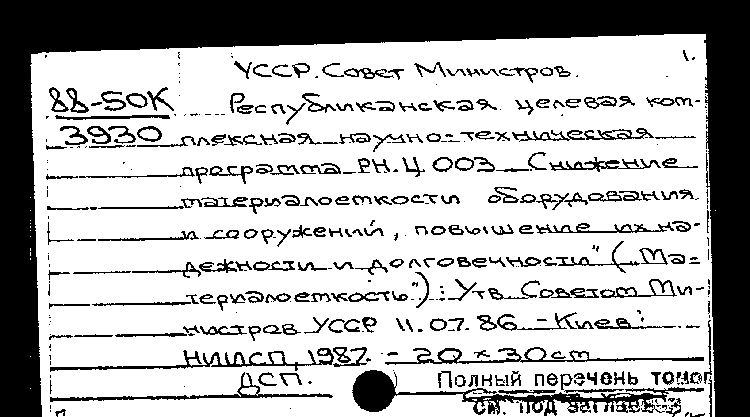 1.
УССР. Совет Министров.
88-50К
3930
Республиканская целевая ком-
плексная научно-техническая
программа РН.Ц 003 Снижение
материалоемкости оборудования
и сооружений, повышение их на-
дежности и долговечности" („Ма-
териалоемкость"): Утв. Советом Ми-
нистров УССР 11.07.86 - Киев:
1987. - 20 x 30 см
ДСП.
Полный перечень
см. под